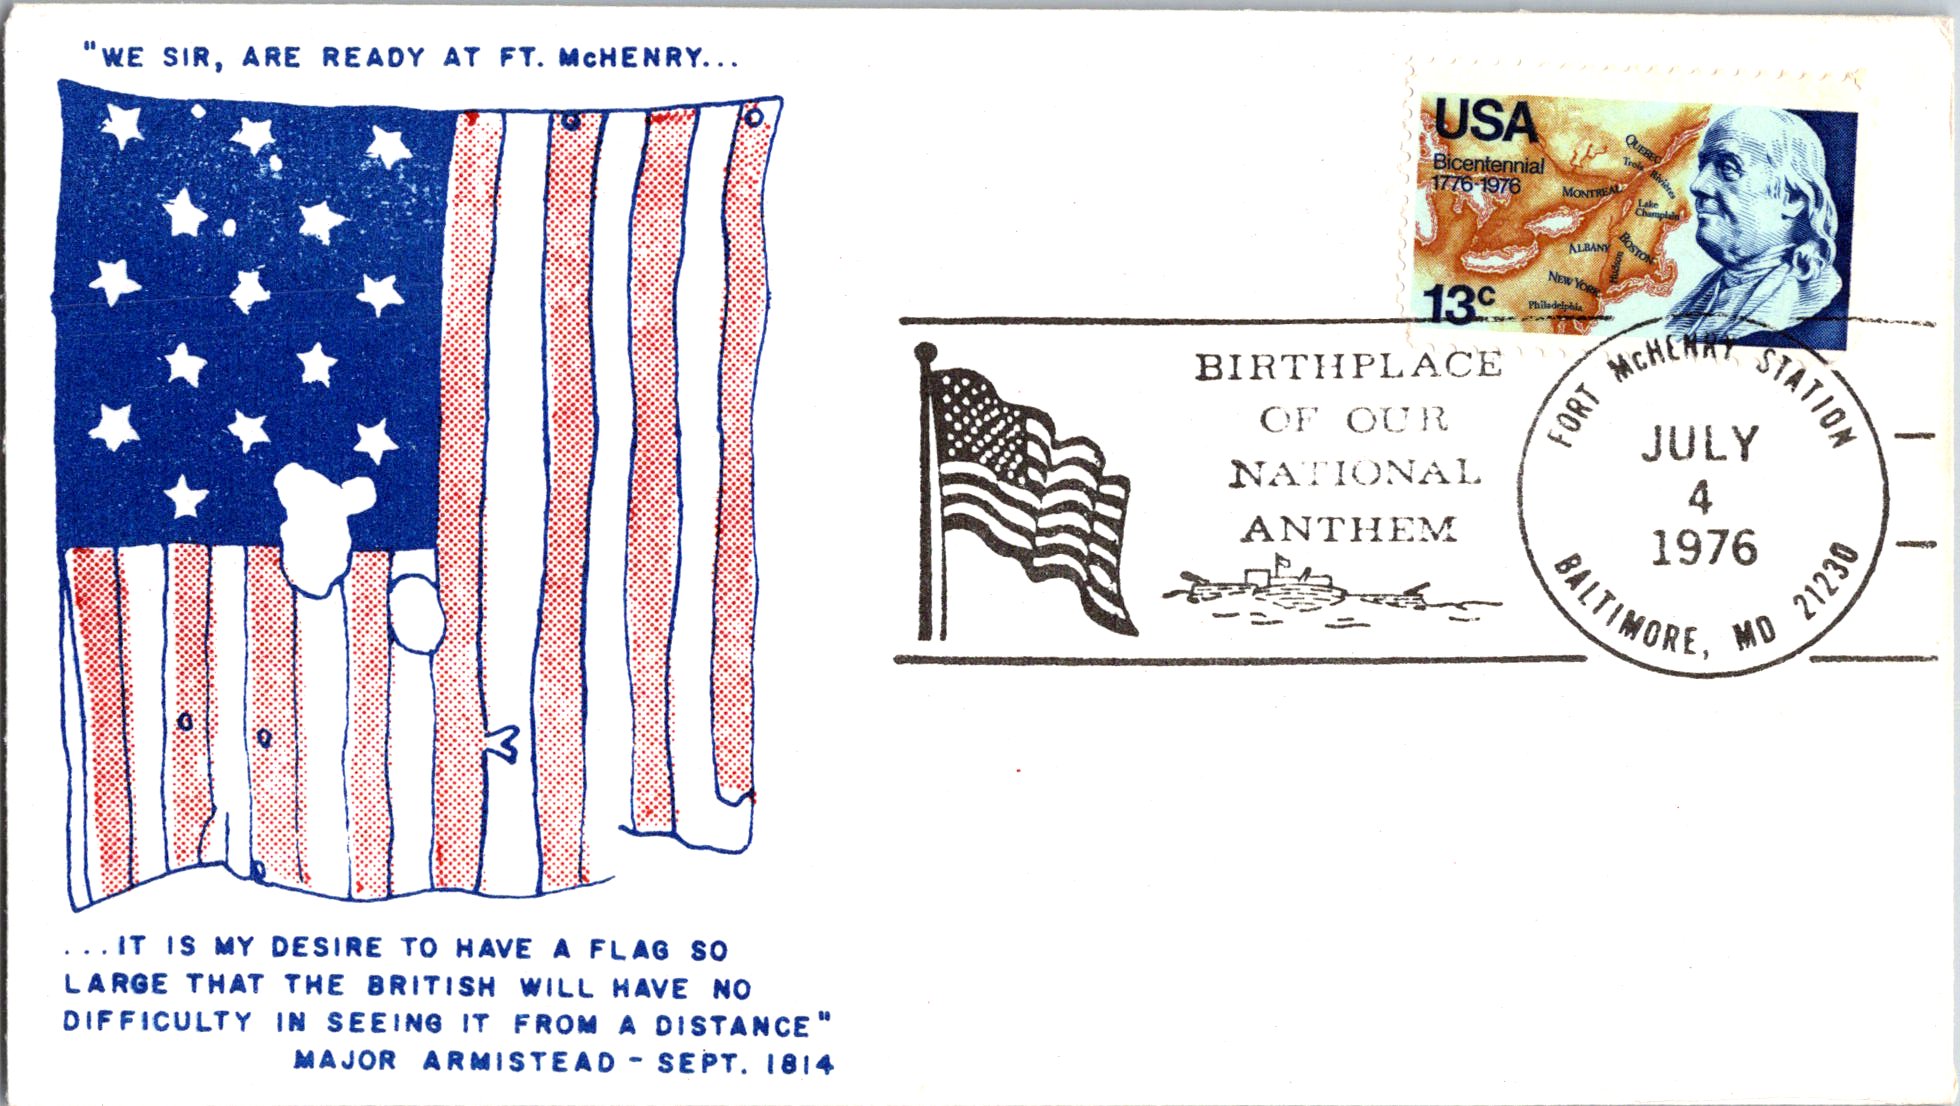 "WE SIR, ARE READY AT FT. McHENRY...
...IT IS MY DESIRE TO HAVE A FLAG SO
LARGE THAT THE BRITISH WILL HAVE NO
DIFFICULTY IN SEEING IT FROM A DISTANCE"
MAJOR ARMISTEAD - SEPT. 1814
USA
Bicentennial
1776-1976
QUEBEC
Trois Rivières
MONTREAL
Lake
Champlain
ALBANY
BOSTON
Hudson
NEW YORK
Philadelphia
13c
BIRTHPLACE
OF OUR
NATIONAL
ANTHEM
FORT McHENRY STATION
JULY
4
1976
BALTIMORE, MD 21230